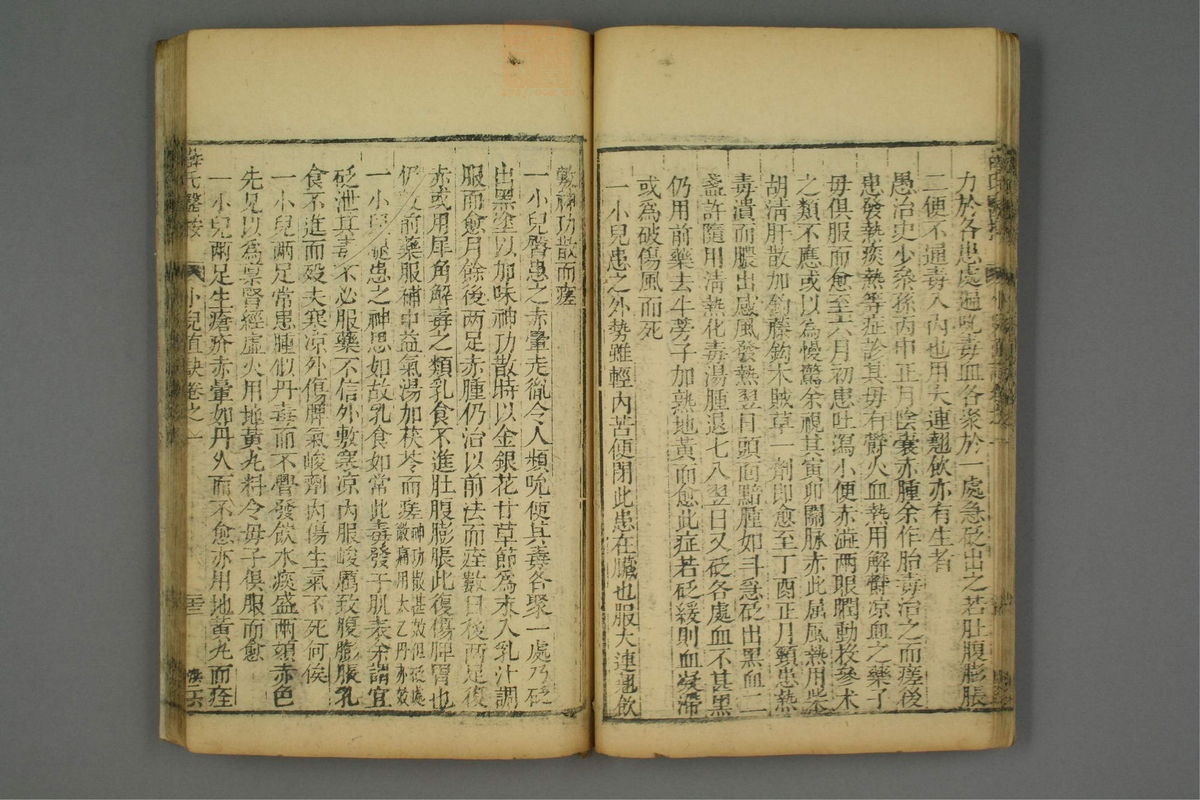 力於各患處遍吮毒血各聚於一處急砭出之若肚腹膨脹
二便不通毒入內也用大連翹飲亦有生者
愚治史少叅孫丙申正月陰囊赤腫余作胎毒治之而瘥後
患發熱痰熱等症診其母有欝火血熱用解欝凉血之藥子
母俱服而愈至六月初患吐瀉小便赤澁兩眼瞤動投參术
之類不應或以為慢驚余視其寅卯關脉赤此屬風熱用柴
胡淸肝散加鈎藤鈎木賊草一劑即愈至丁酉正月頸患熱
毒潰而膿出感風發熱翌日頭面黯腫如斗急砭出黑血二
盞許隨用淸熱化毒湯腫退七八翌日又砭各處血不甚黑
仍用前藥去牛蒡子加熟地黃而愈此症若砭緩則血凝滯
或為破傷風而死
一小兒患之外勢雖輕內苦便閉此患在臟也服大連翹飲
敷神功散而瘥
一小兒臀患之赤暈走彻令人頻吮使其毒各聚一處乃砭
出黑塗以加味神功散時以金銀花甘草節為末入乳汁調
服而愈月餘後两足赤腫仍治以前法而痊數日後两足復
赤或用犀角解毒之類乳食不進肚腹膨脹此復傷脾胃也
仍 前藥服補中益氣湯加茯苓而瘥神功散甚效但砭處
敷痛用太乙丹亦效
一小兒 患之神思如故乳食如常此毒發于肌表余謂宜
砭泄其毒 不必服藥不信外敷寒凉內服峻厲致腹膨脹乳
食不進而歿夫寒凉外傷脾氣峻劑內傷生氣不死何俟
一小兒兩足常患腫似丹毒而不欝發飲水痰盛兩頰赤色
先兄以為禀腎經虛火用地黃丸料令母子俱服而愈
一小兒兩足生瘡疥赤暈如丹火而不愈亦用地黃丸而痊
薛氏醫按 小兒直訣卷之一